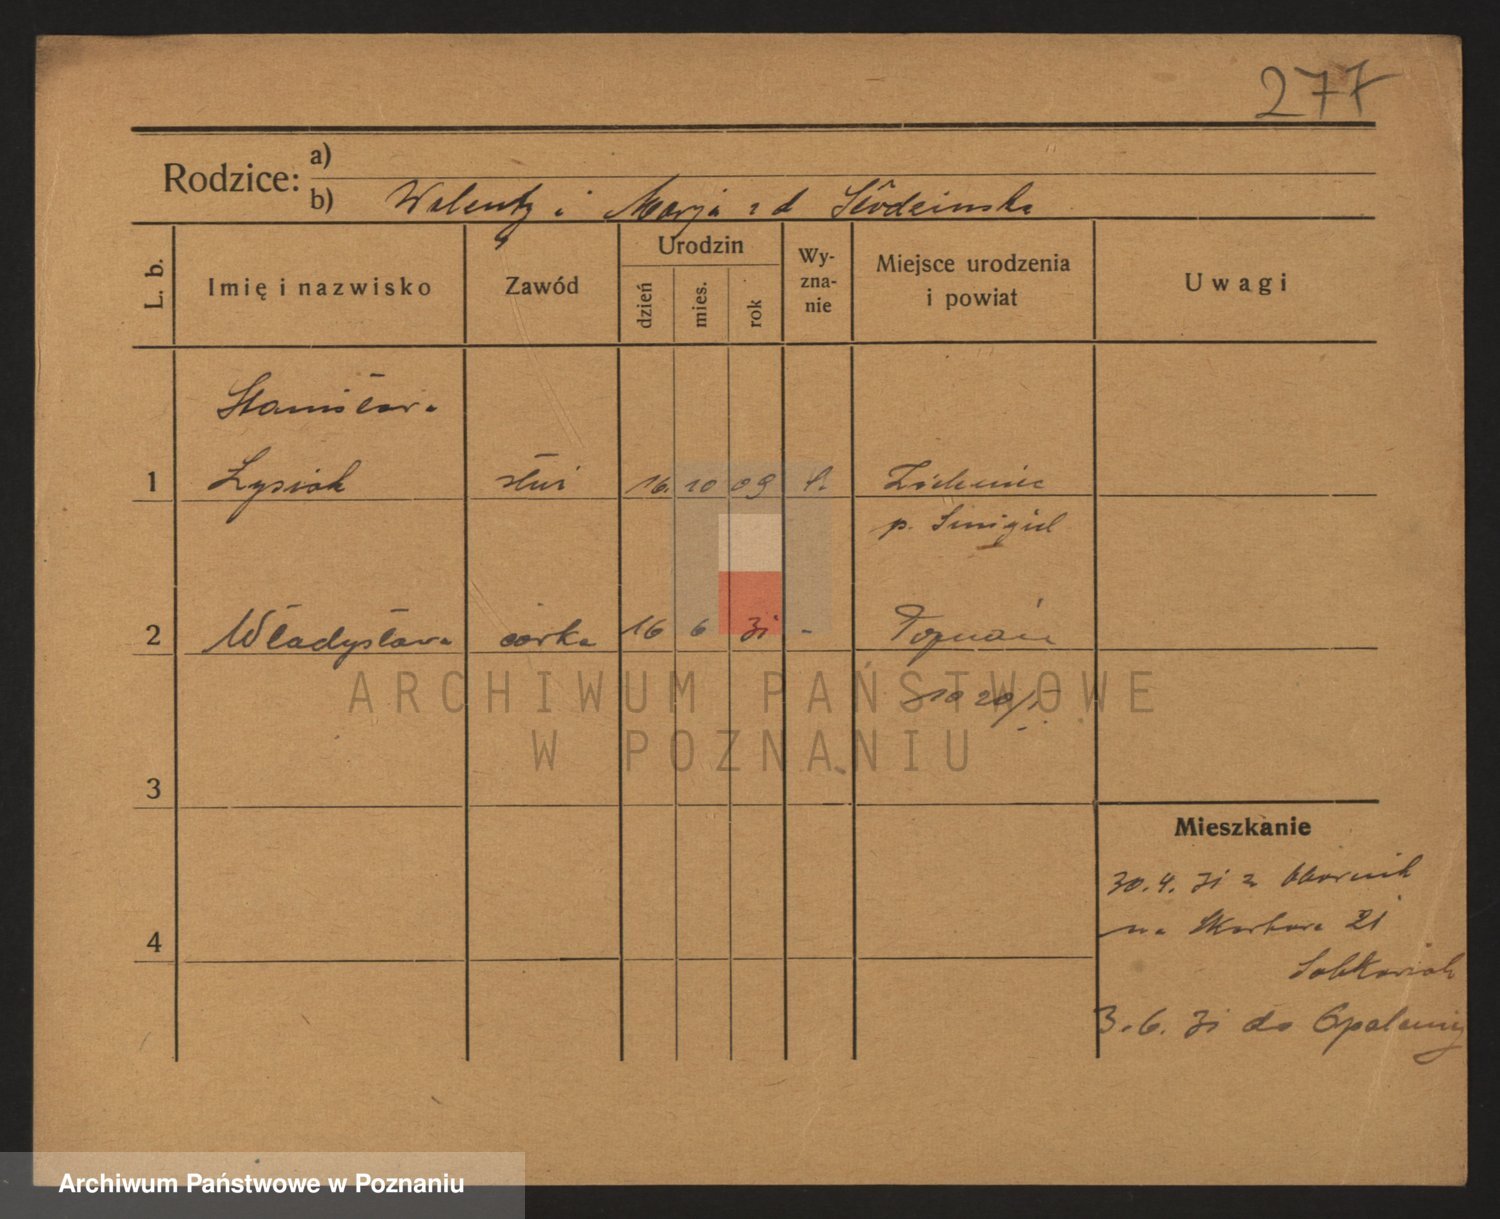 277
Rodzice:
a)
b) Walenty i Marja z d Słodzinska
L. b.
Imię i nazwisko
Zawód
Urodzin
dzień
mies.
rok
Wy-
zna-
nie
Miejsce urodzenia
i powiat
Uwagi
Stanisława
1 Łysiak służ 16. 10 09
p. Śmigiel
2 Władysława córka 16 6 31 - Poznań
1020/I
3
4
Mieszkanie
30.4. 31 z Obornik
na Skarbowa 21
3.6. 31 do Opalenicy
ARCHIWUM PAŃSTWOWE
W POZNANIU
Archiwum Państwowe w Poznaniu